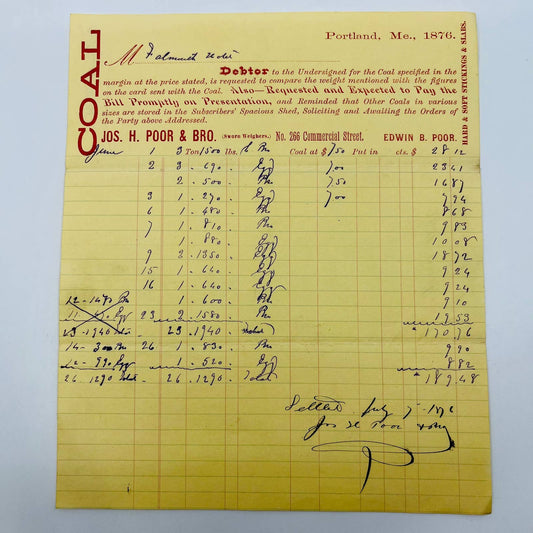 COAL
Portland, Me., 1876.
M Falmouth Hotel
Debtor to the Undersigned for the Coal specified in the
margin at the price stated, is requested to compare the weight mentioned with the figures
on the card sent with the Coal. Also—Requested and Expected to Pay the
Bill Promptly on Presentation, and Reminded that Other Coals in various
sizes are stored in the Subscribers' Spacious Shed, Soliciting and Awaiting the Orders of
the Party above Addressed.
HARD & SOFT STICKINGS & SLABS.
JOS. H. POOR & BRO. (Sworn Weighers.) No. 266 Commercial Street. EDWIN B. POOR.
June 1 3 Ton 1500 lbs. Coal at $ 750 Put in cts. $ 28 12
2 3 . 690 . Egg 700 23 41
2 . 500 . 750 16 87
3 1 . 270 . Egg 700 7 94
6 1 . 480 . 8 68
7 1 . 810 . 9 83
1 . 880 . Egg 10 08
9 2 . 1350 . Egg 18 72
15 1 . 640 . Egg 9 24
16 1 . 640 . Egg 9 24
1 . 600 . 9 10
23 2 . 1580 . 19 53
23 . 1940 . 170 76
26 1 . 830 . 9 90
1 . 520 . Egg 8 82
26 . 1290 Total 26 . 1290 . Total 189 48
Settled July 7 1876
Jos H Poor & Bro